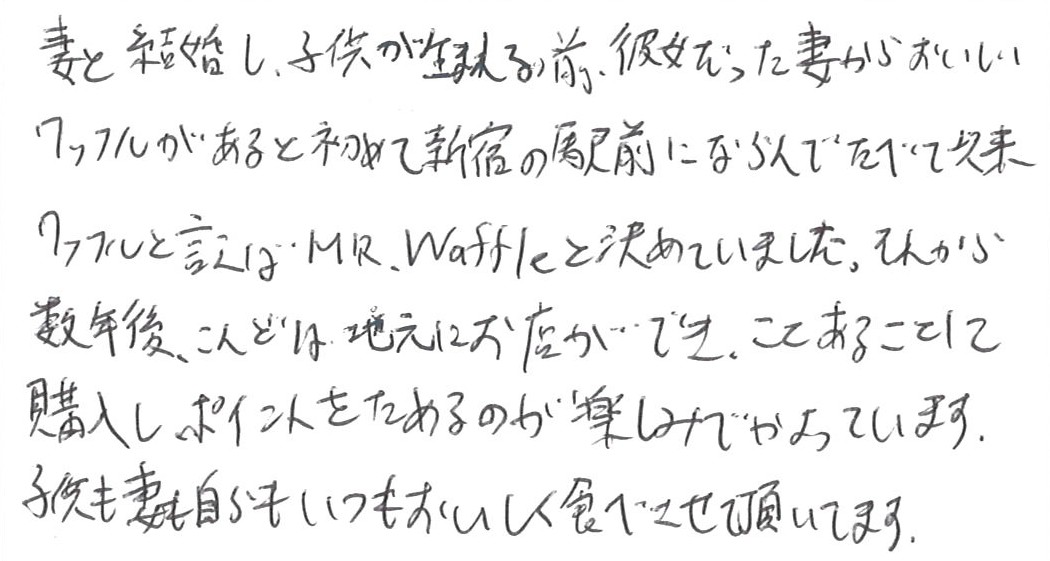 妻と結婚し、子供が生まれる前、彼女だった妻からおいしい
ワッフルがあると初めて新宿の駅前にならんでたべて以来
ワッフルと言えばMR.Waffleと決めていました。それから
数年後、こんどは地元にお店ができ、ことあることして
購入しポイントをためるのが楽しみでかよっています.
子供も妻も自分もいつもおいしく食べさせて頂いてます.